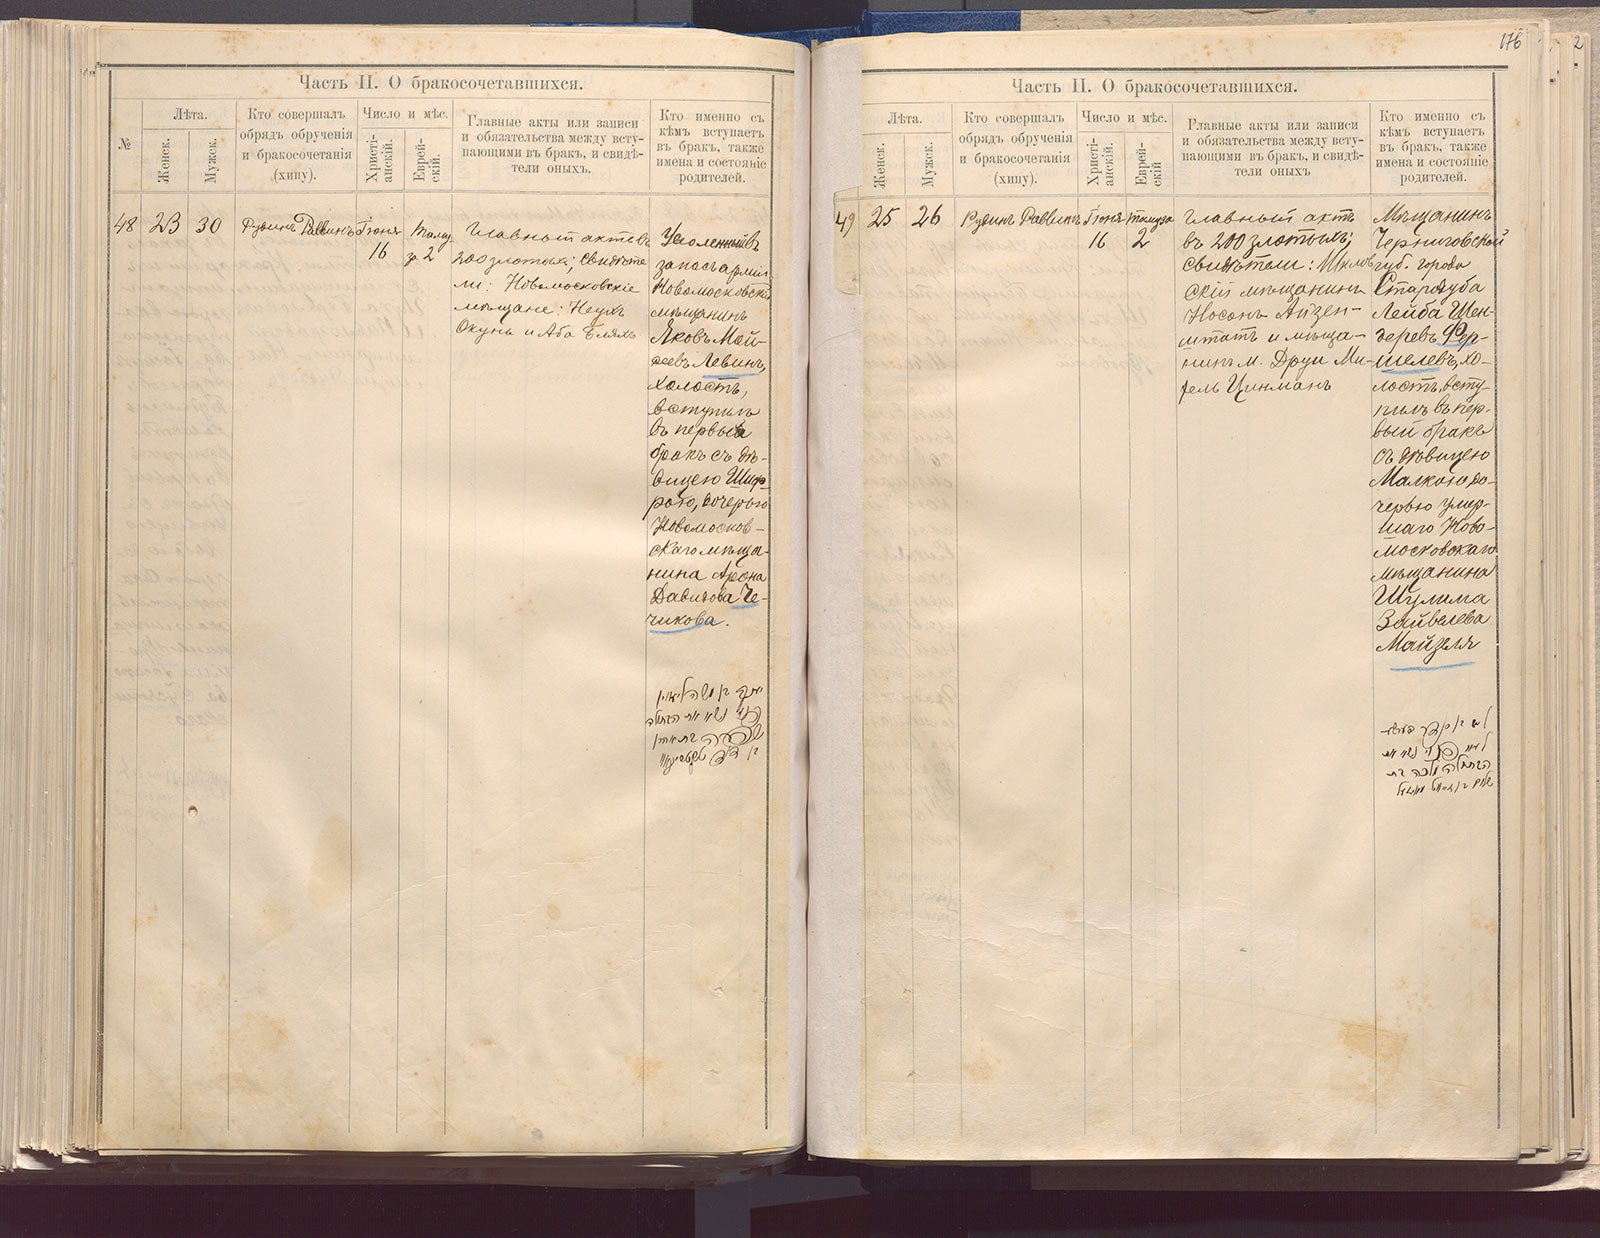 Часть II. О бракосочетавшихся.
№
Лѣта.
Женск.
Мужск.
Кто совершалъ
обрядъ обрученія
и бракосочетанія
(хипу).
Число и мѣс.
Христі-
анскій.
Еврей-
скій.
Главные акты или записи
и обязательства между всту-
пающими въ бракъ, и свидѣ-
тели оныхъ.
Кто именно съ
кѣмъ вступаетъ
въ бракъ, также
имена и состояніе
родителей.
48
23
30
Рудинъ Раввинъ
Іюня
16
Тамуз
за 2
Главный актъ въ
200 злотыхъ; свидѣте
ли: Новомосковскіе
мѣщане:
Окунь и Аба
Уволенный въ
запасъ арміи
Новомосковскій
мѣщанинъ
Яковъ Мой-
сеевъ Левинъ,
холостъ,
вступилъ
въ первый
бракъ съ дѣ-
вицею Шиф-
рою, дочерью
Новомосков-
скаго мѣща-
нина Арона
Давидова Че-
чикова.
176
2
Часть II. О бракосочетавшихся.
Лѣта.
Женск.
Мужск.
Кто совершалъ
обрядъ обрученія
и бракосочетанія
(хипу).
Число и мѣс.
Христі-
анскій.
Еврей-
скій
Главные акты или записи
и обязательства между всту-
пающими въ бракъ, и свидѣ-
тели оныхъ
Кто именно съ
кѣмъ вступаетъ
въ бракъ, также
имена и состояніе
родителей.
49
25
26
Рудинъ Раввинъ
Іюня
16
Тамуза
2
Главный актъ
въ 200 злотыхъ;
свидѣтели: Шклов
скій мѣщанинъ
Носонъ Айзен-
штатъ и мѣща-
нинъ м. Друи Ми-
хель Цинманъ
Мѣщанинъ
Черниговской
губ. города
Стародуба
Лейба Шен-
деревъ Фер-
шелевъ, хо-
лостъ, всту-
пилъ въ пер-
вый бракъ
съ дѣвицею
Малкою до-
черью умер-
шаго Ново-
московскаго
мѣщанина
Шулима
Зайвелева
Майзеля